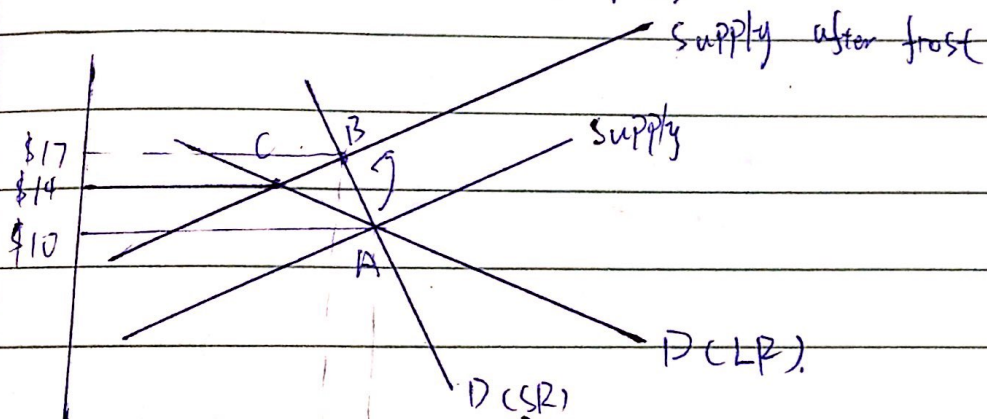 Supply after frost
Supply
$17
C
B
$14
$10
A
D(LR).
D(SR)